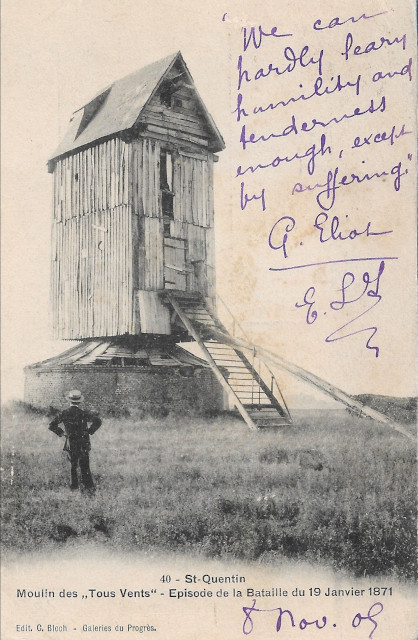 "We can
hardly learn
humility and
tenderness
enough, except
by suffering."
G. Eliot
40 - St-Quentin
Moulin des „Tous Vents" - Episode de la Bataille du 19 Janvier 1871
Edit. C. Bloch - Galeries du Progrès.
8 Nov. 05